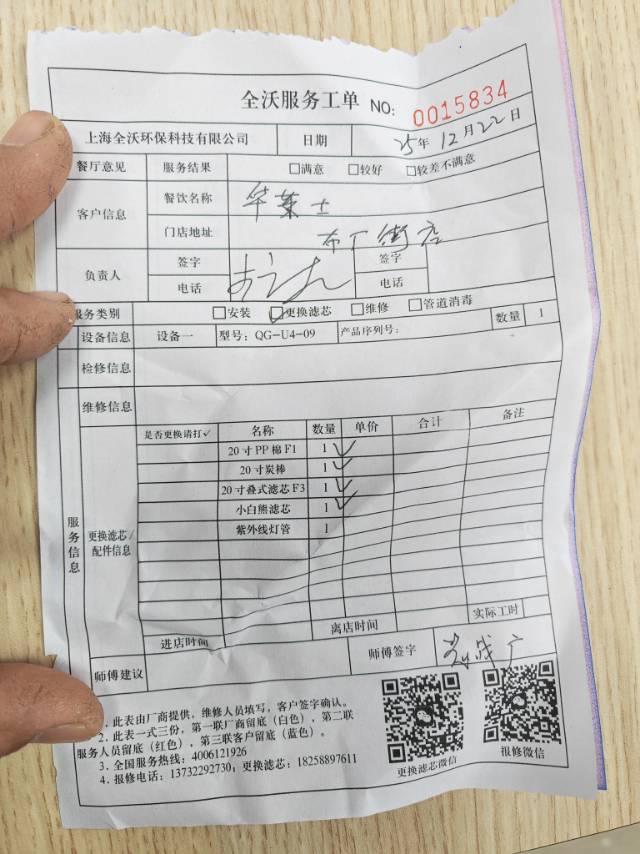 全沃服务工单 NO: 0015834
上海全沃环保科技有限公司 日期 25年12月22日
餐厅意见 服务结果 □满意 □较好 □较差不满意
客户信息 餐饮名称 华莱士
门店地址 布厂街店
负责人 签字 签字
电话 电话
服务类别 □安装 ☑更换滤芯 □维修 □管道消毒
设备信息 设备一 型号：QG-U4-09 产品序列号： 数量 1
检修信息
维修信息
服务信息
更换滤芯/配件信息
是否更换请打✓ 名称 数量 单价 合计 备注
20寸PP棉F1 1 ✓
20寸炭棒 1 ✓
20寸叠式滤芯F3 1 ✓
小白熊滤芯 1 ✓
紫外线灯管 1
进店时间 离店时间 实际工时
师傅建议 师傅签字
1. 此表由厂商提供，维修人员填写，客户签字确认。
2. 此表一式三份，第一联厂商留底（白色），第二联
服务人员留底（红色），第三联客户留底（蓝色）。
3. 全国服务热线：4006121926
4. 报修电话：13732292730；更换滤芯：18258897611
更换滤芯微信 报修微信